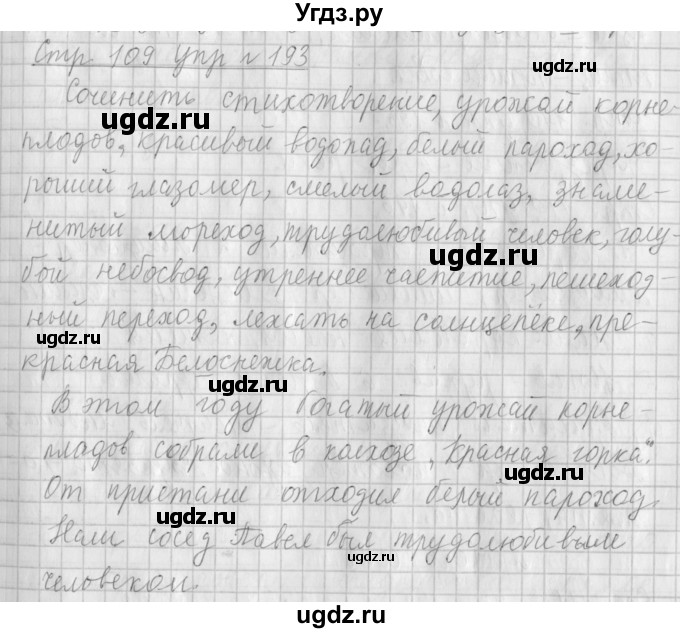 Угдз.ру
Стр. 109 упр № 193
ugdz.ru
Сочинить стихотворение, урожай корне-
ugdz.ru
плодов, красивый водопад, белый пароход, хо-
ugdz.ru
роший глазомер, смелый водолаз, знаме-
нитый мореход, трудолюбивый человек, голу-
ugdz.ru
бой небосвод, утреннее чаепитие, пешеход-
ный переход, лежать на солнцепёке, пре-
ugdz.ru
красная Белоснежка.
ugdz.ru
В этом году богатый урожай корне-
пладов собрали в колхозе „Красная горка".
ugdz.ru
От пристани отходил белый пароход.
ugdz.ru
Наш сосед Павел был трудолюбивым
ugdz.ru
человеком
ugdz.ru